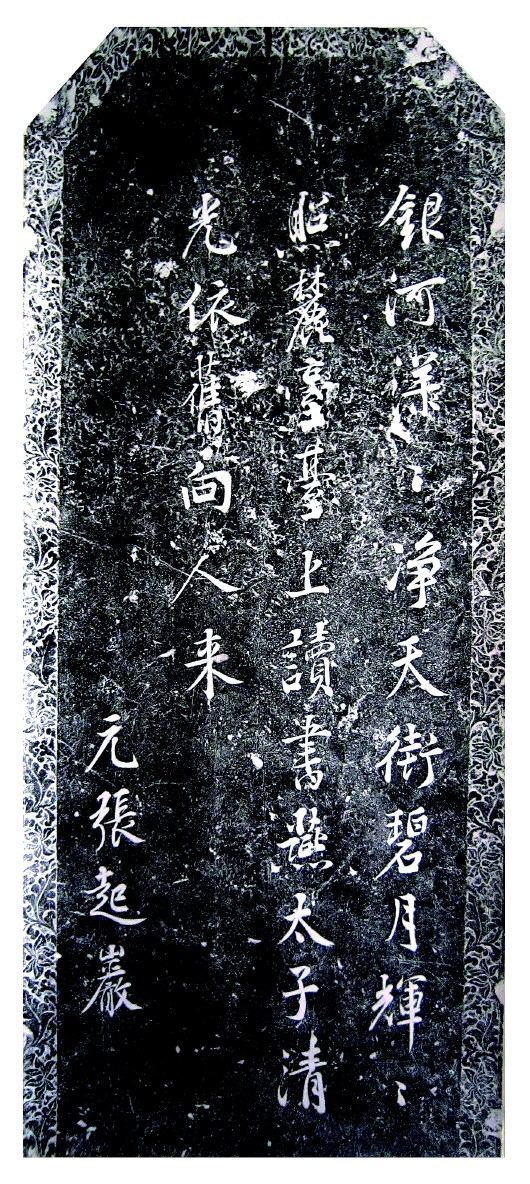 銀河漾〻净天街碧月輝〻
照麓臺臺上讀書太子清
光依舊向人来
元張起巖